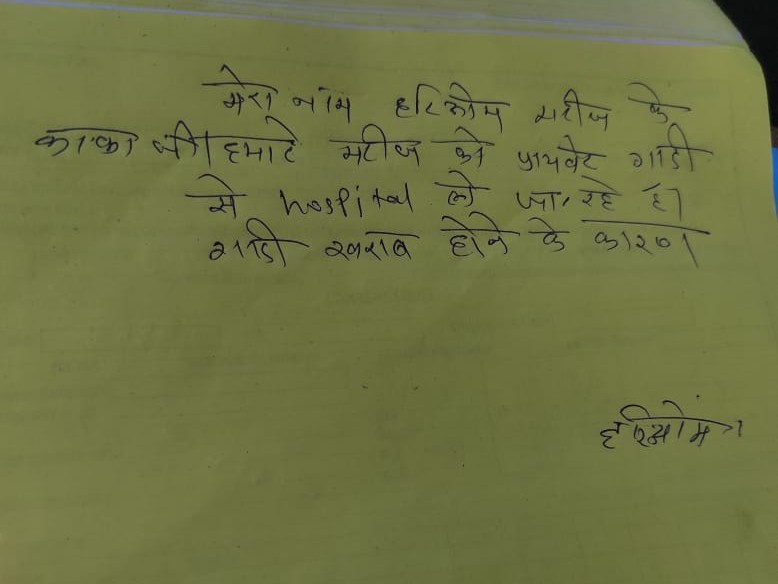 मेरा नाम हरिओम मरीज के
काका जी। हमारे मरीज को प्रायवेट गाडी
से hospital ले जा रहे है।
गाडी खराब होने के कारण।
हरिओम